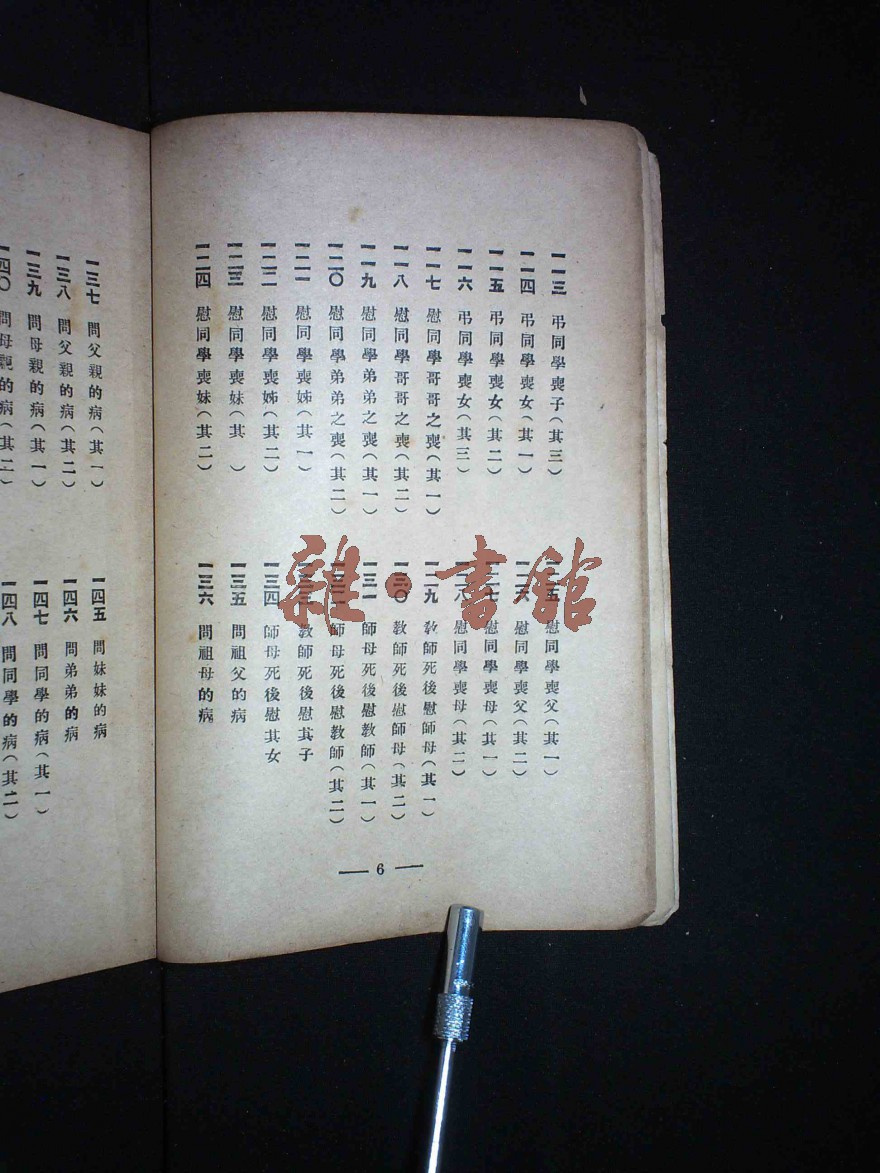 一一三 弔同學喪子(其三)
一一四 弔同學喪女(其一)
一一五 弔同學喪女(其二)
一一六 弔同學喪女(其三)
一一七 慰同學哥哥之喪(其一)
一一八 慰同學哥哥之喪(其二)
一一九 慰同學弟弟之喪(其一)
一二〇 慰同學弟弟之喪(其二)
一二一 慰同學喪姊(其一)
一二二 慰同學喪姊(其二)
一二三 慰同學喪妹(其 )
一二四 慰同學喪妹(其二)
一二五 慰同學喪父(其一)
一二六 慰同學喪父(其二)
一二七 慰同學喪母(其一)
一二八 慰同學喪母(其二)
一二九 教師死後慰師母(其一)
一三〇 教師死後慰師母(其二)
一三一 師母死後慰教師(其一)
一三二 師母死後慰教師(其二)
一三三 教師死後慰其子
一三四 師母死後慰其女
一三五 問祖父的病
一三六 問祖母的病
6
一三七 問父親的病(其一)
一三八 問父親的病(其二)
一三九 問母親的病(其一)
一四〇 問母親的病(其二)
一四五 問妹妹的病
一四六 問弟弟的病
一四七 問同學的病(其一)
一四八 問同學的病(其二)
雜·書館